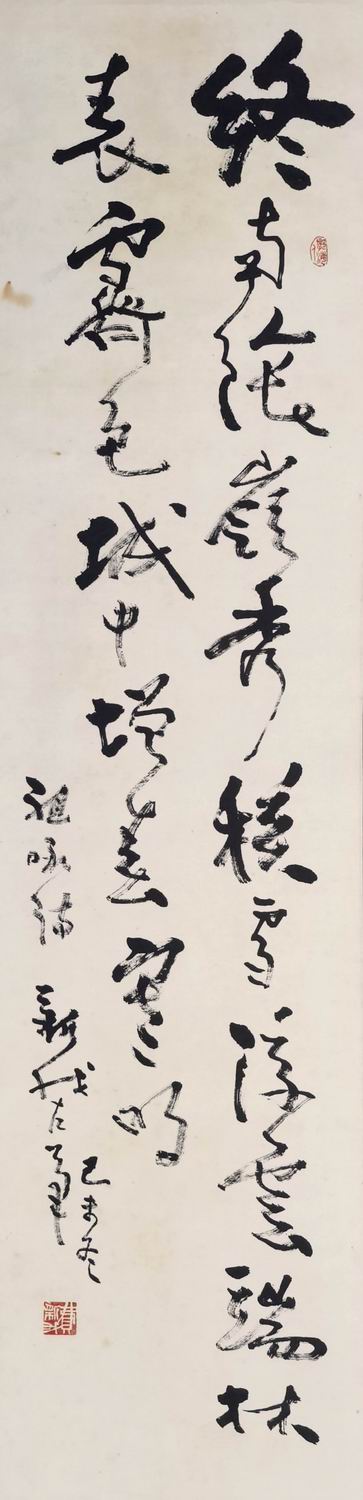 終南陰嶺秀積雪浮雲端林
表霽色城中增暮寒明
祖詠詩 新我左筆
己未冬